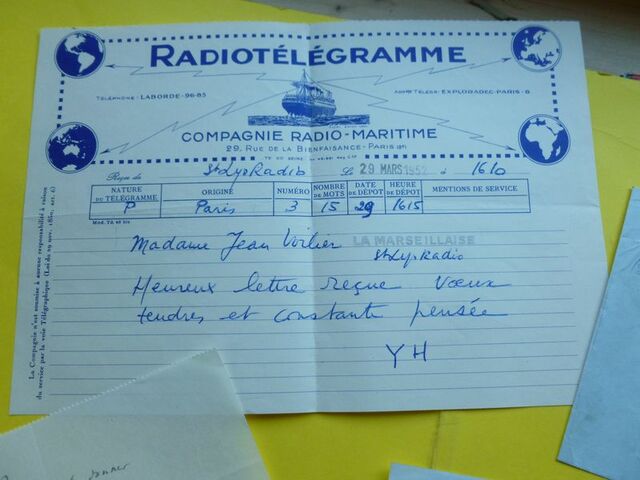 RADIOTÉLÉGRAMME
TÉLÉPHONE: LABORDE-96-85
ADRSSE TÉLÉGR: EXPLORADEC-PARIS-8
COMPAGNIE RADIO-MARITIME
29, RUE DE LA BIENFAISANCE-PARIS (8e)
Reçu de St Lys Radio Le 29 MARS 1952 à 1610
NATURE DU TÉLÉGRAMME ORIGINE NUMÉRO NOMBRE DE MOTS DATE DE DÉPOT HEURE DE DÉPOT MENTIONS DE SERVICE
P Paris 3 15 29 1615
Madame Jean Voilier LA MARSEILLAISE
St Lys Radio
Heureux lettre reçue Vœux
tendres et constante pensée
YH
La Compagnie n'est soumise à aucune responsabilité à raison
du service par la voie Télégraphique (Loi du 29 nov. 1850, art. 6)